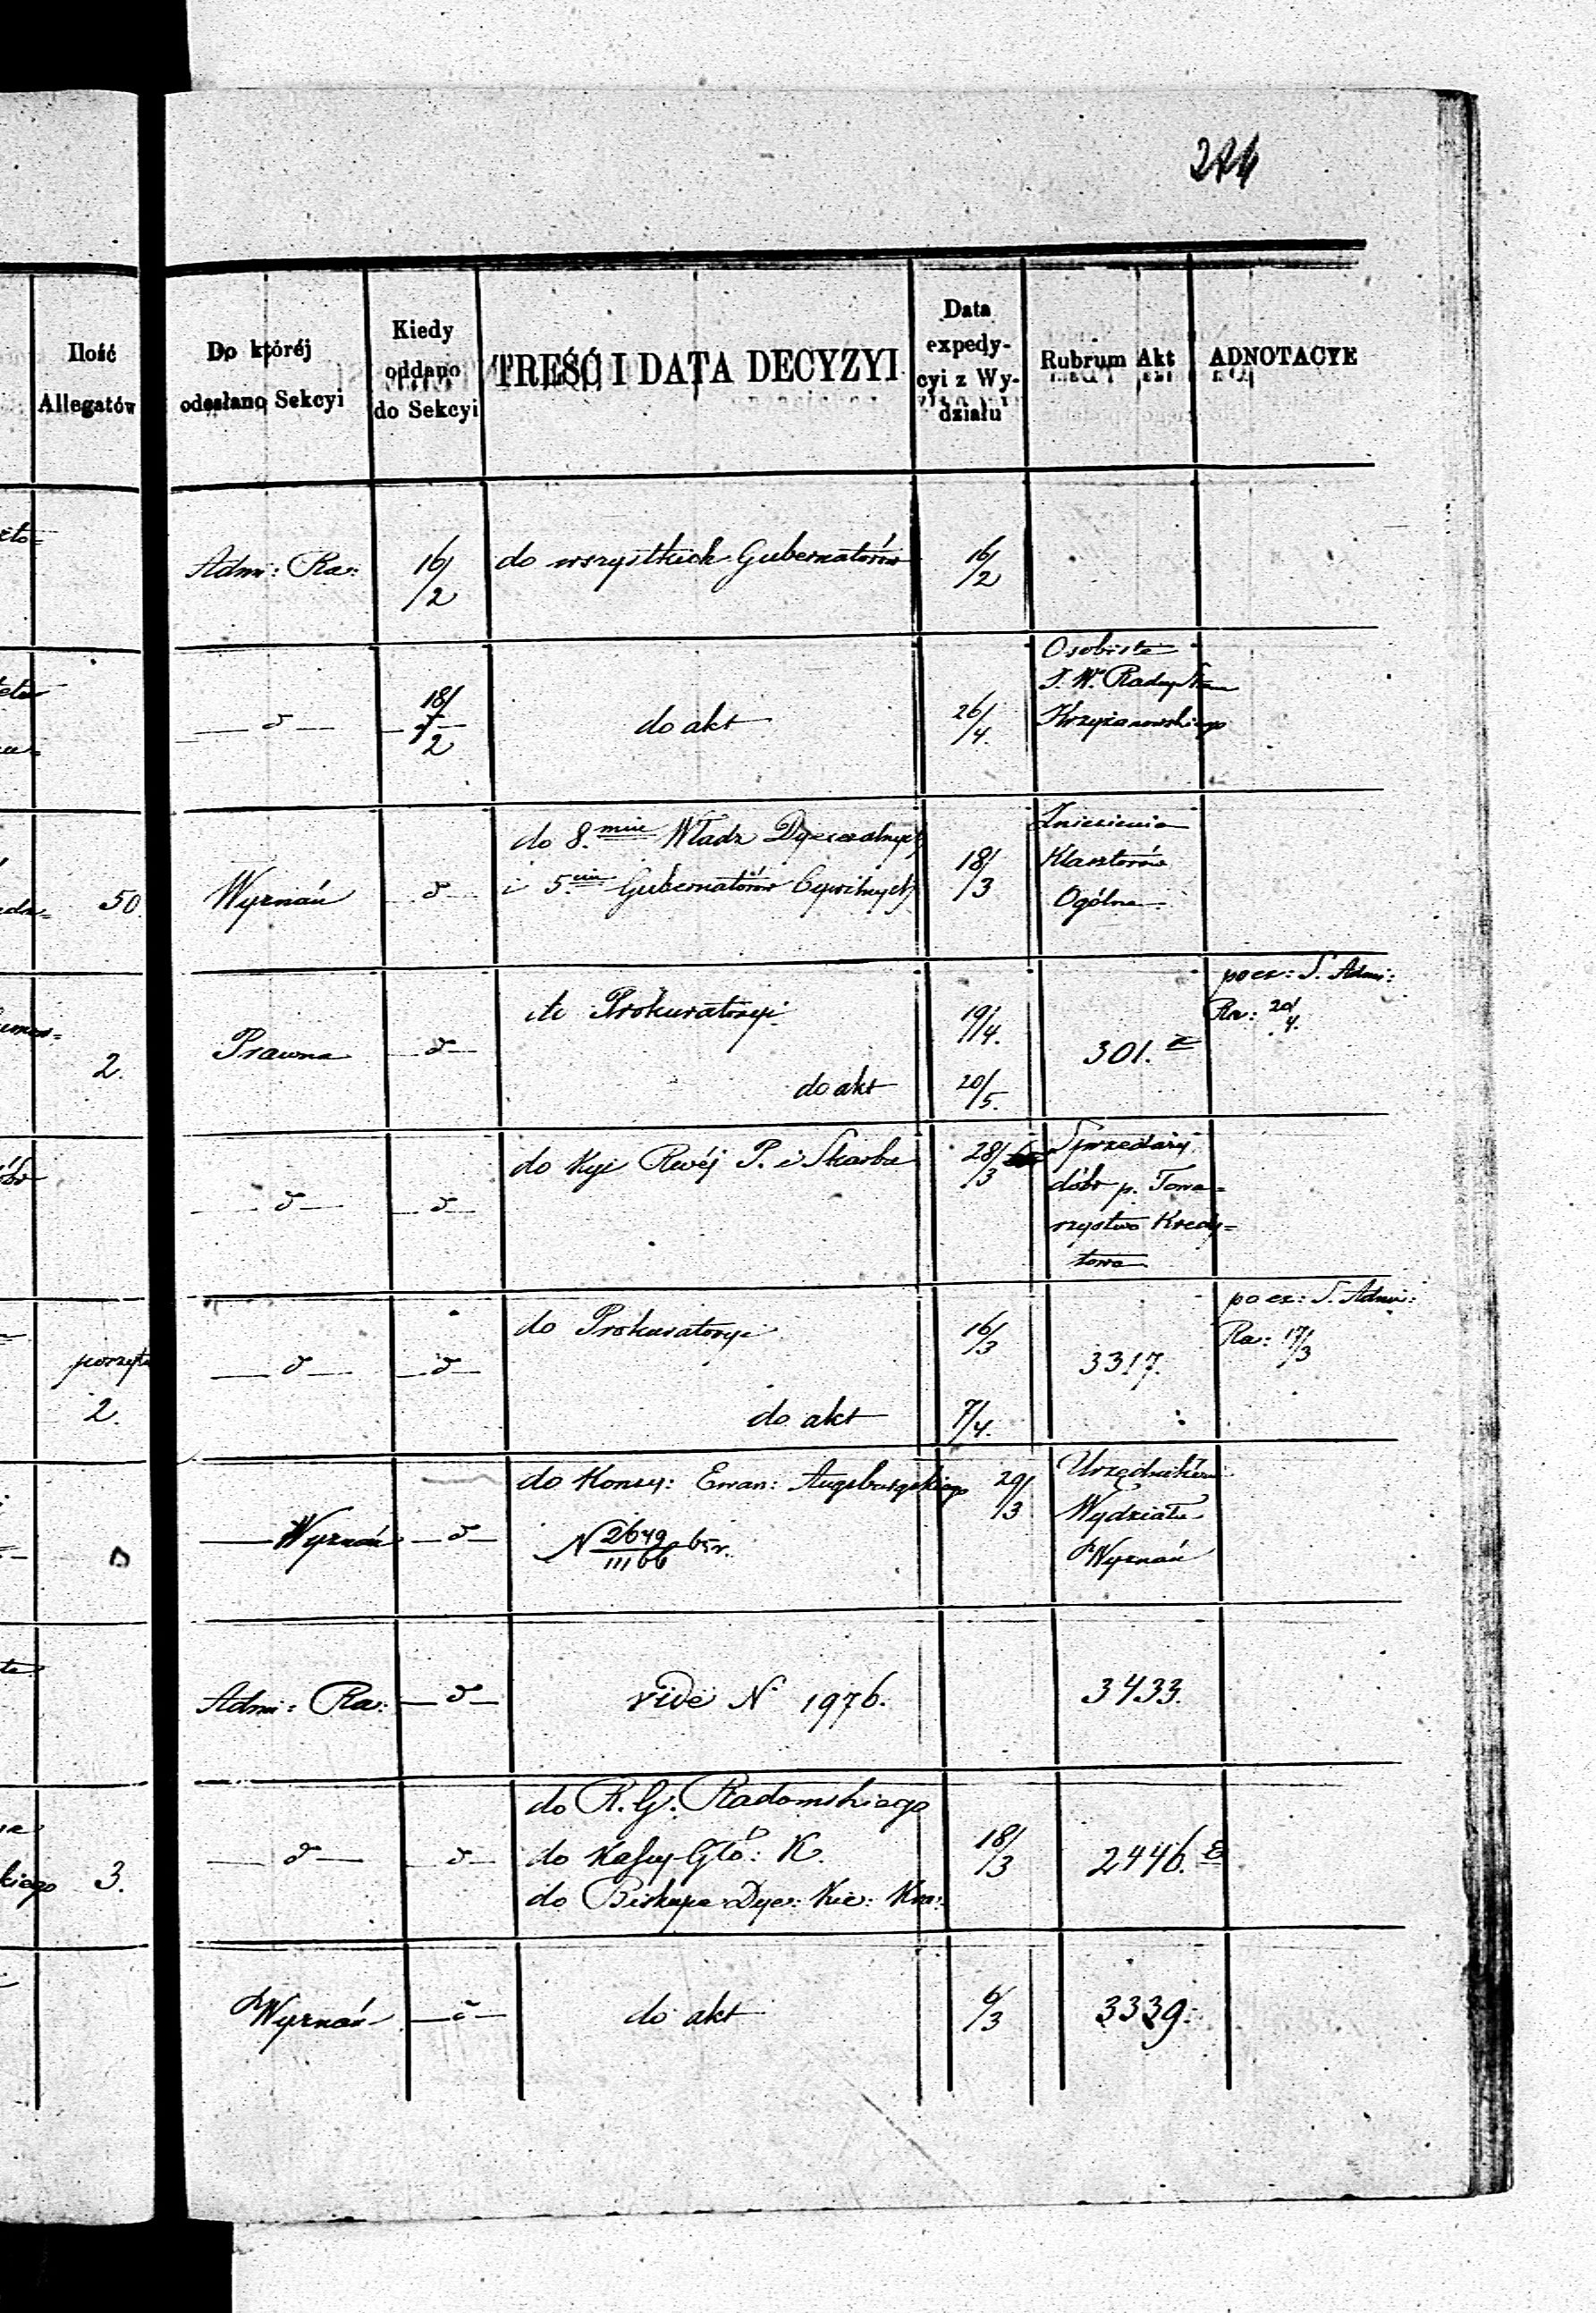 Ilość
Allegatów
Do któréj
odesłano Sekcyi
Kiedy
oddano
do Sekcyi
TREŚĆ I DATA DECYZYI
Data
expedy-
cyi z Wy-
działu
Rubrum Akt
ADNOTACYE
Adm: Ra: 16/2 do wszystkich Gubernatorów 16/2
Osobiste
J. W. Radcy
Krzyżanowskiego
— d — 18/2 do akt 26/4.
50. Wyznań d
do 8.miu Władz Dyecezalnych
i 5.ciu Gubernatorów Cywilnych
18/3
Zniesienia
Klasztorów
Ogólne
2. Prawna — d —
do Prokuratoryi 19/4.
do akt 20/5.
301.
pocz: S. Adm:
Ra: 20/4.
— d — — d —
do Kyi Rwéj P. i Skarbu 28/3
Sprzedaży
dóbr p. Towa=
rzystwo Kredy=
towe
2.
— d — — d —
do Prokuratoryi 16/3
do akt 7/4.
3317.
pocz: S. Adm:
Ra: 17/3
— Wyznań — d —
do Konsy: Ewan: Augsburgskiego 29/3
N 2649/11166 65r.
Urzędników
Wydziału
Wyznań
Adm: Ra: — d — vide N. 1976. 3433.
3. — d — — d —
do R. G. Radomskiego
do Kassy Głó: K.
do Biskupa Dye: Kie: Kra:
18/3
2446.
Wyznań — d — do akt 6/3 3339.